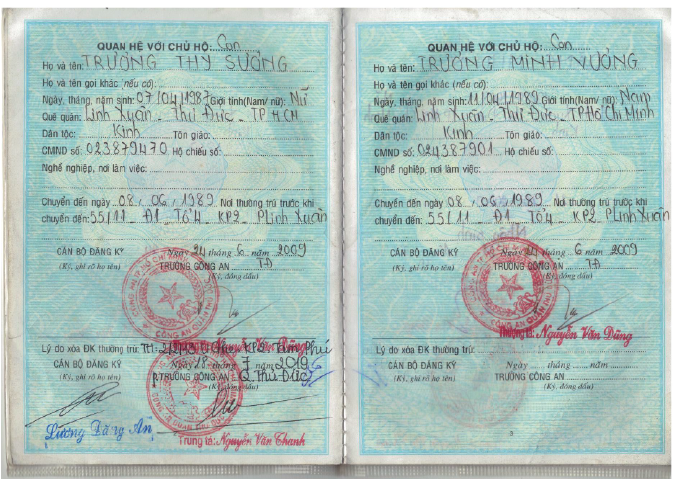 QUAN HỆ VỚI CHỦ HỘ: Con
Họ và tên: TRƯỞNG THY SƯỞNG
Họ và tên gọi khác (nếu có):
Ngày, tháng, năm sinh: 07/04/1987 Giới tính (Nam/ nữ): Nữ
Quê quán: Linh Xuân - Thủ Đức - TP H.CM
Dân tộc: Kinh Tôn giáo:
CMND số: 023879470 Hộ chiếu số:
Nghề nghiệp, nơi làm việc:
Chuyển đến ngày 08/06/1989 Nơi thường trú trước khi
chuyển đến: 55/11 Đ1 Tổ 4 KP2 P Linh Xuân
Ngày 24 tháng 6 năm 2009
CÁN BỘ ĐĂNG KÝ
(Ký, ghi rõ họ tên)
TRƯỞNG CÔNG AN TĐ
(Ký, đóng dấu)
Nguyễn Văn Dũng
Lý do xóa ĐK thường trú: KP2
CÁN BỘ ĐĂNG KÝ
(Ký, ghi rõ họ tên)
Ngày 18 tháng 7 năm 2019
TRƯỞNG CÔNG AN Q. Thủ Đức
(Ký, đóng dấu)
Lương Đăng Ân
Trung tá: Nguyễn Văn Thanh
QUAN HỆ VỚI CHỦ HỘ: Con
Họ và tên: TRƯỞNG MINH VƯỞNG
Họ và tên gọi khác (nếu có):
Ngày, tháng, năm sinh: 11/04/1989 Giới tính (Nam/ nữ): Nam
Quê quán: Linh Xuân - Thủ Đức - TP Hồ Chí Minh
Dân tộc: Kinh Tôn giáo:
CMND số: 024387901 Hộ chiếu số:
Nghề nghiệp, nơi làm việc:
Chuyển đến ngày 08/06/1989 Nơi thường trú trước khi
chuyển đến: 55/11 Đ1 Tổ 4 KP2 P Linh Xuân
Ngày 24 tháng 6 năm 2009
CÁN BỘ ĐĂNG KÝ
(Ký, ghi rõ họ tên)
TRƯỞNG CÔNG AN TĐ
(Ký, đóng dấu)
Nguyễn Văn Dũng
Lý do xóa ĐK thường trú:
CÁN BỘ ĐĂNG KÝ
(Ký, ghi rõ họ tên)
Ngày tháng năm
TRƯỞNG CÔNG AN
(Ký, đóng dấu)